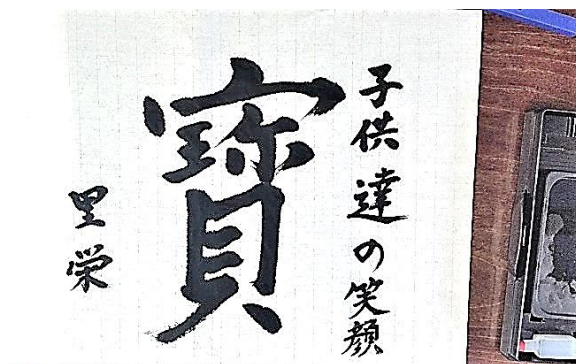 子供達の笑顔
寳
里栄